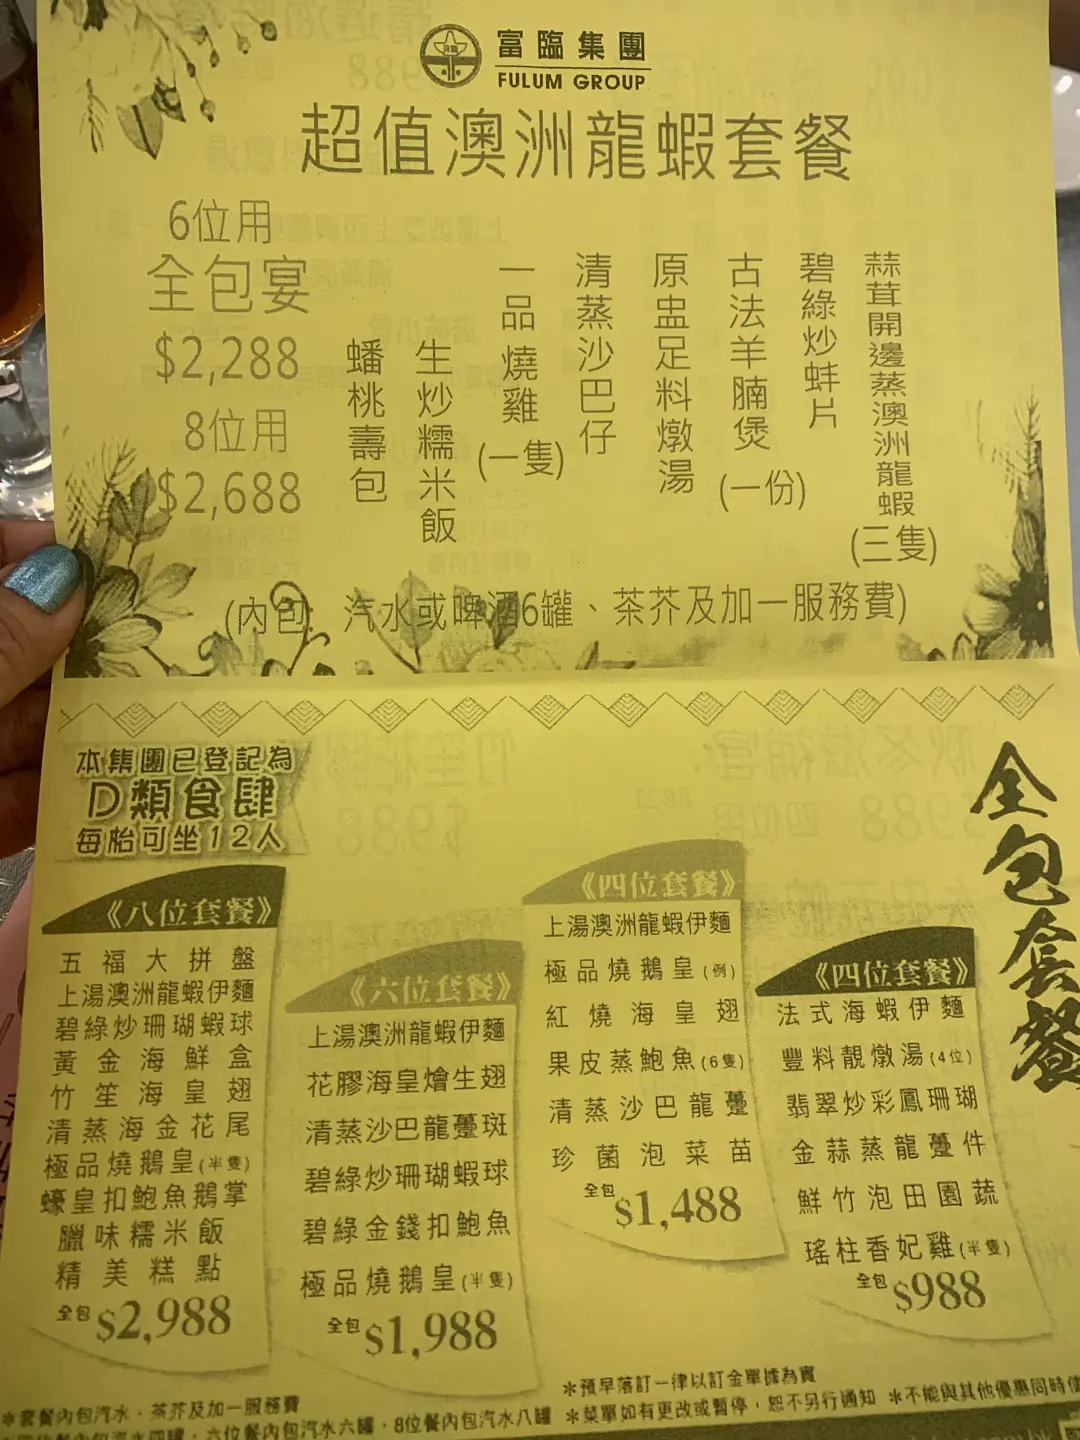 富臨集團
FULUM GROUP
超值澳洲龍蝦套餐
6位用
全包宴
$2,288
8位用
$2,688
蒜茸開邊蒸澳洲龍蝦(三隻)
碧綠炒蚌片
古法羊腩煲(一份)
原盅足料燉湯
清蒸沙巴仔
一品燒雞(一隻)
生炒糯米飯
蟠桃壽包
(內包: 汽水或啤酒6罐、茶芥及加一服務費)
本集團已登記為
D類食肆
每枱可坐12人
全包套餐
《八位套餐》
五福大拼盤
上湯澳洲龍蝦伊麵
碧綠炒珊瑚蝦球
黃金海鮮盒
竹笙海皇翅
清蒸海金花尾
極品燒鵝皇(半隻)
蠔皇扣鮑魚鵝掌
臘味糯米飯
精美糕點
全包$2,988
《六位套餐》
上湯澳洲龍蝦伊麵
花膠海皇燴生翅
清蒸沙巴龍躉斑
碧綠炒珊瑚蝦球
碧綠金錢扣鮑魚
極品燒鵝皇(半隻)
全包$1,988
《四位套餐》
上湯澳洲龍蝦伊麵
極品燒鵝皇(例)
紅燒海皇翅
果皮蒸鮑魚(6隻)
清蒸沙巴龍躉
珍菌泡菜苗
全包$1,488
《四位套餐》
法式海蝦伊麵
豐料靚燉湯(4位)
翡翠炒彩鳳珊瑚
金蒜蒸龍躉件
鮮竹泡田園蔬
瑤柱香妃雞(半隻)
全包$988
*套餐內包汽水、茶芥及加一服務費
四位餐內包汽水四罐，六位餐內包汽水六罐，8位餐內包汽水八罐
*預早落訂一律以訂金單據為實
*菜單如有更改或暫停，恕不另行通知 *不能與其他優惠同時使